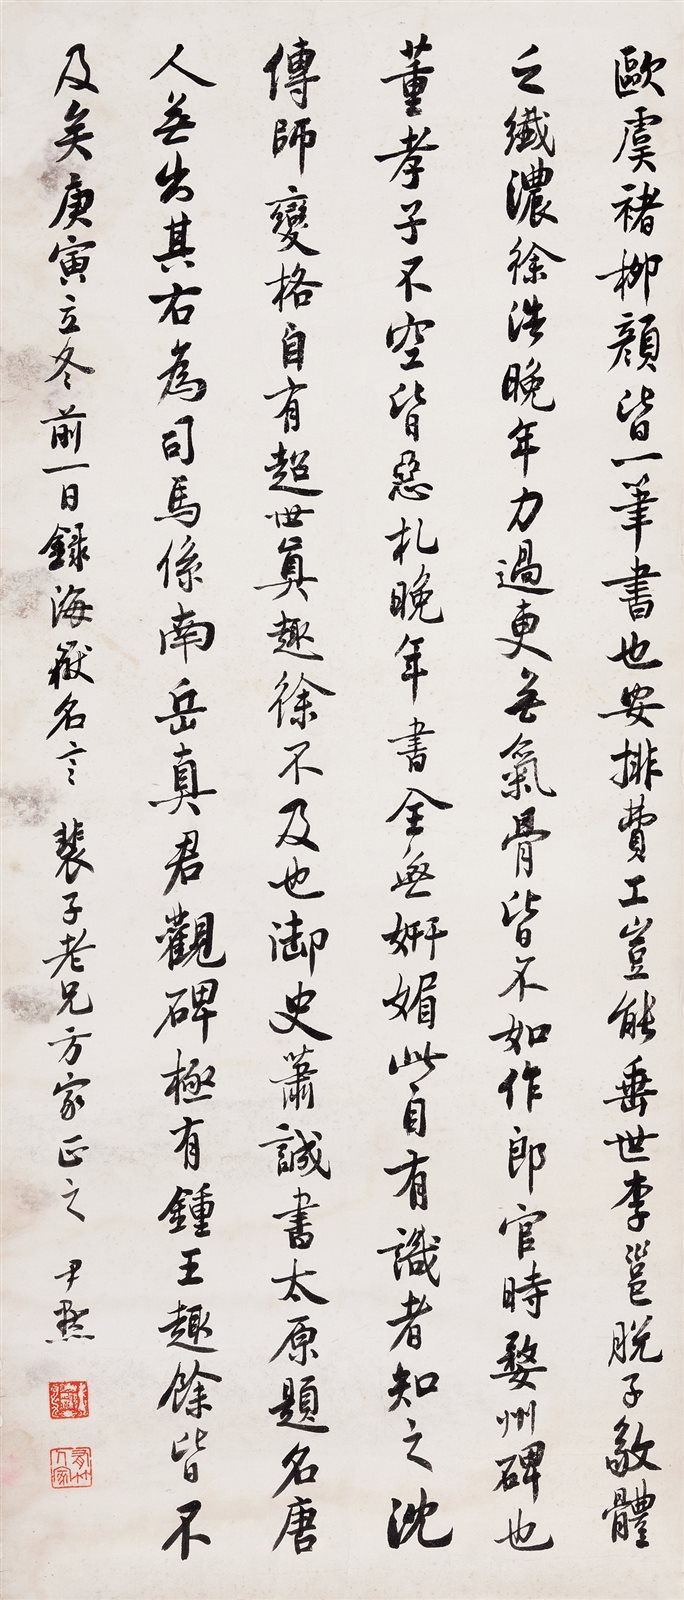 歐虞褚柳顏皆一筆書也安排費工豈能垂世李邕脫子敬體
之纖濃徐浩晚年力過更無氣骨皆不如作郎官時婺州碑也
董孝子不空皆惡札晚年書全無妍媚此自有識者知之沈
傳師變格自有超世真趣徐不及也御史蕭誠書太原題名唐
人無出其右為司馬係南岳真君觀碑極有鍾王趣餘皆不
及矣庚寅立冬前一日錄海嶽名言 裴子老兄方家正之 尹默